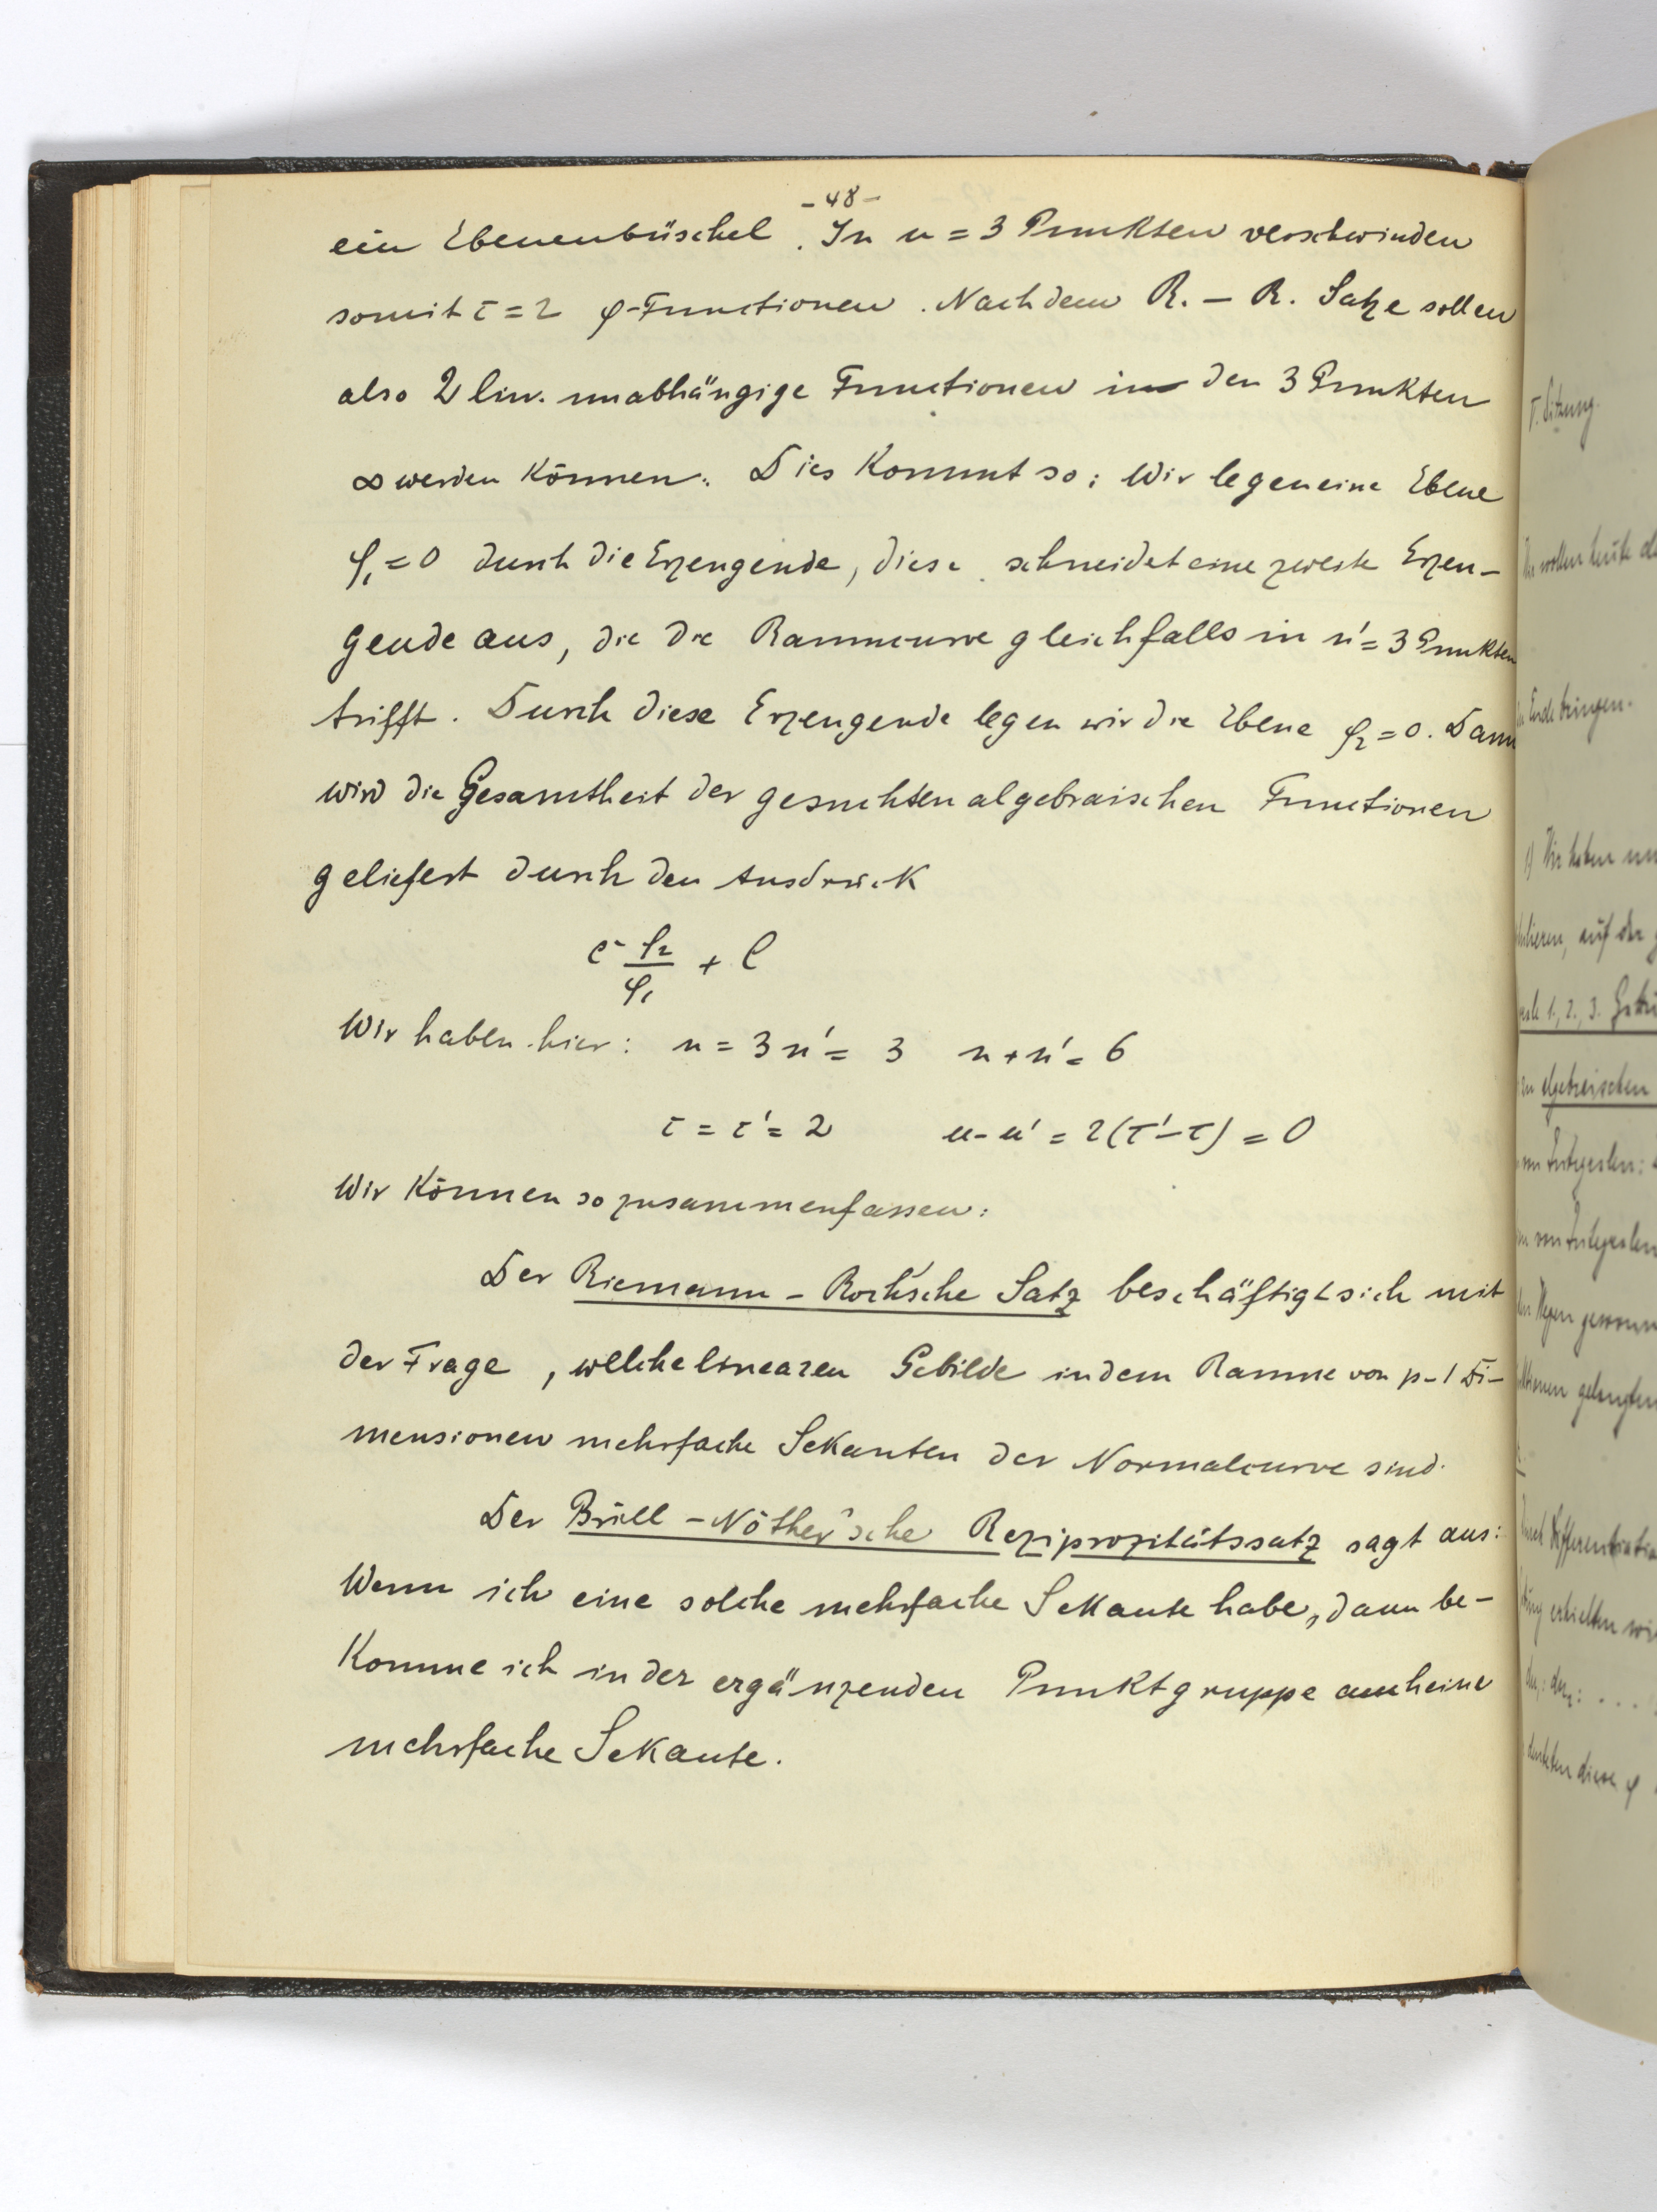 - 48 -
ein Ebenenbüschel. In n = 3 Punkten verschwinden
somit τ = 2 φ-Functionen. Nach dem R. - R. Satze sollen
also 2 lin. unabhängige Functionen in den 3 Punkten
∞ werden können. Dies kommt so: Wir legen eine Ebene
φ₁ = 0 durch die Erzeugende, diese schneidet eine zweite Erzeu-
gende aus, die die Raumcurve gleichfalls in n' = 3 Punkten
trifft. Durch diese Erzeugende legen wir die Ebene φ₂ = 0. Dann
wird die Gesamtheit der gesuchten algebraischen Functionen
geliefert durch den Ausdruck
c · φ₂/φ₁ + C
Wir haben hier: n = 3 n' = 3 n + n' = 6
τ = τ' = 2 n - n' = 2(τ' - τ) = 0
Wir können so zusammenfassen:
Der Riemann - Roch'sche Satz beschäftigt sich mit
der Frage, welche linearen Gebilde in dem Raume von p-1 Di-
mensionen mehrfache Sekanten der Normalcurve sind.
Der Brill - Nöther'sche Reziprozitätssatz sagt aus:
Wenn ich eine solche mehrfache Sekante habe, dann be-
komme ich in der ergänzenden Punktgruppe auch eine
mehrfache Sekante.
Sitzung.
wollen heute
Ende bringen.
1) Wir haben
auf der
1., 2., 3.
algebraischen
von Integralen
gelangten
erhielten
diese φ